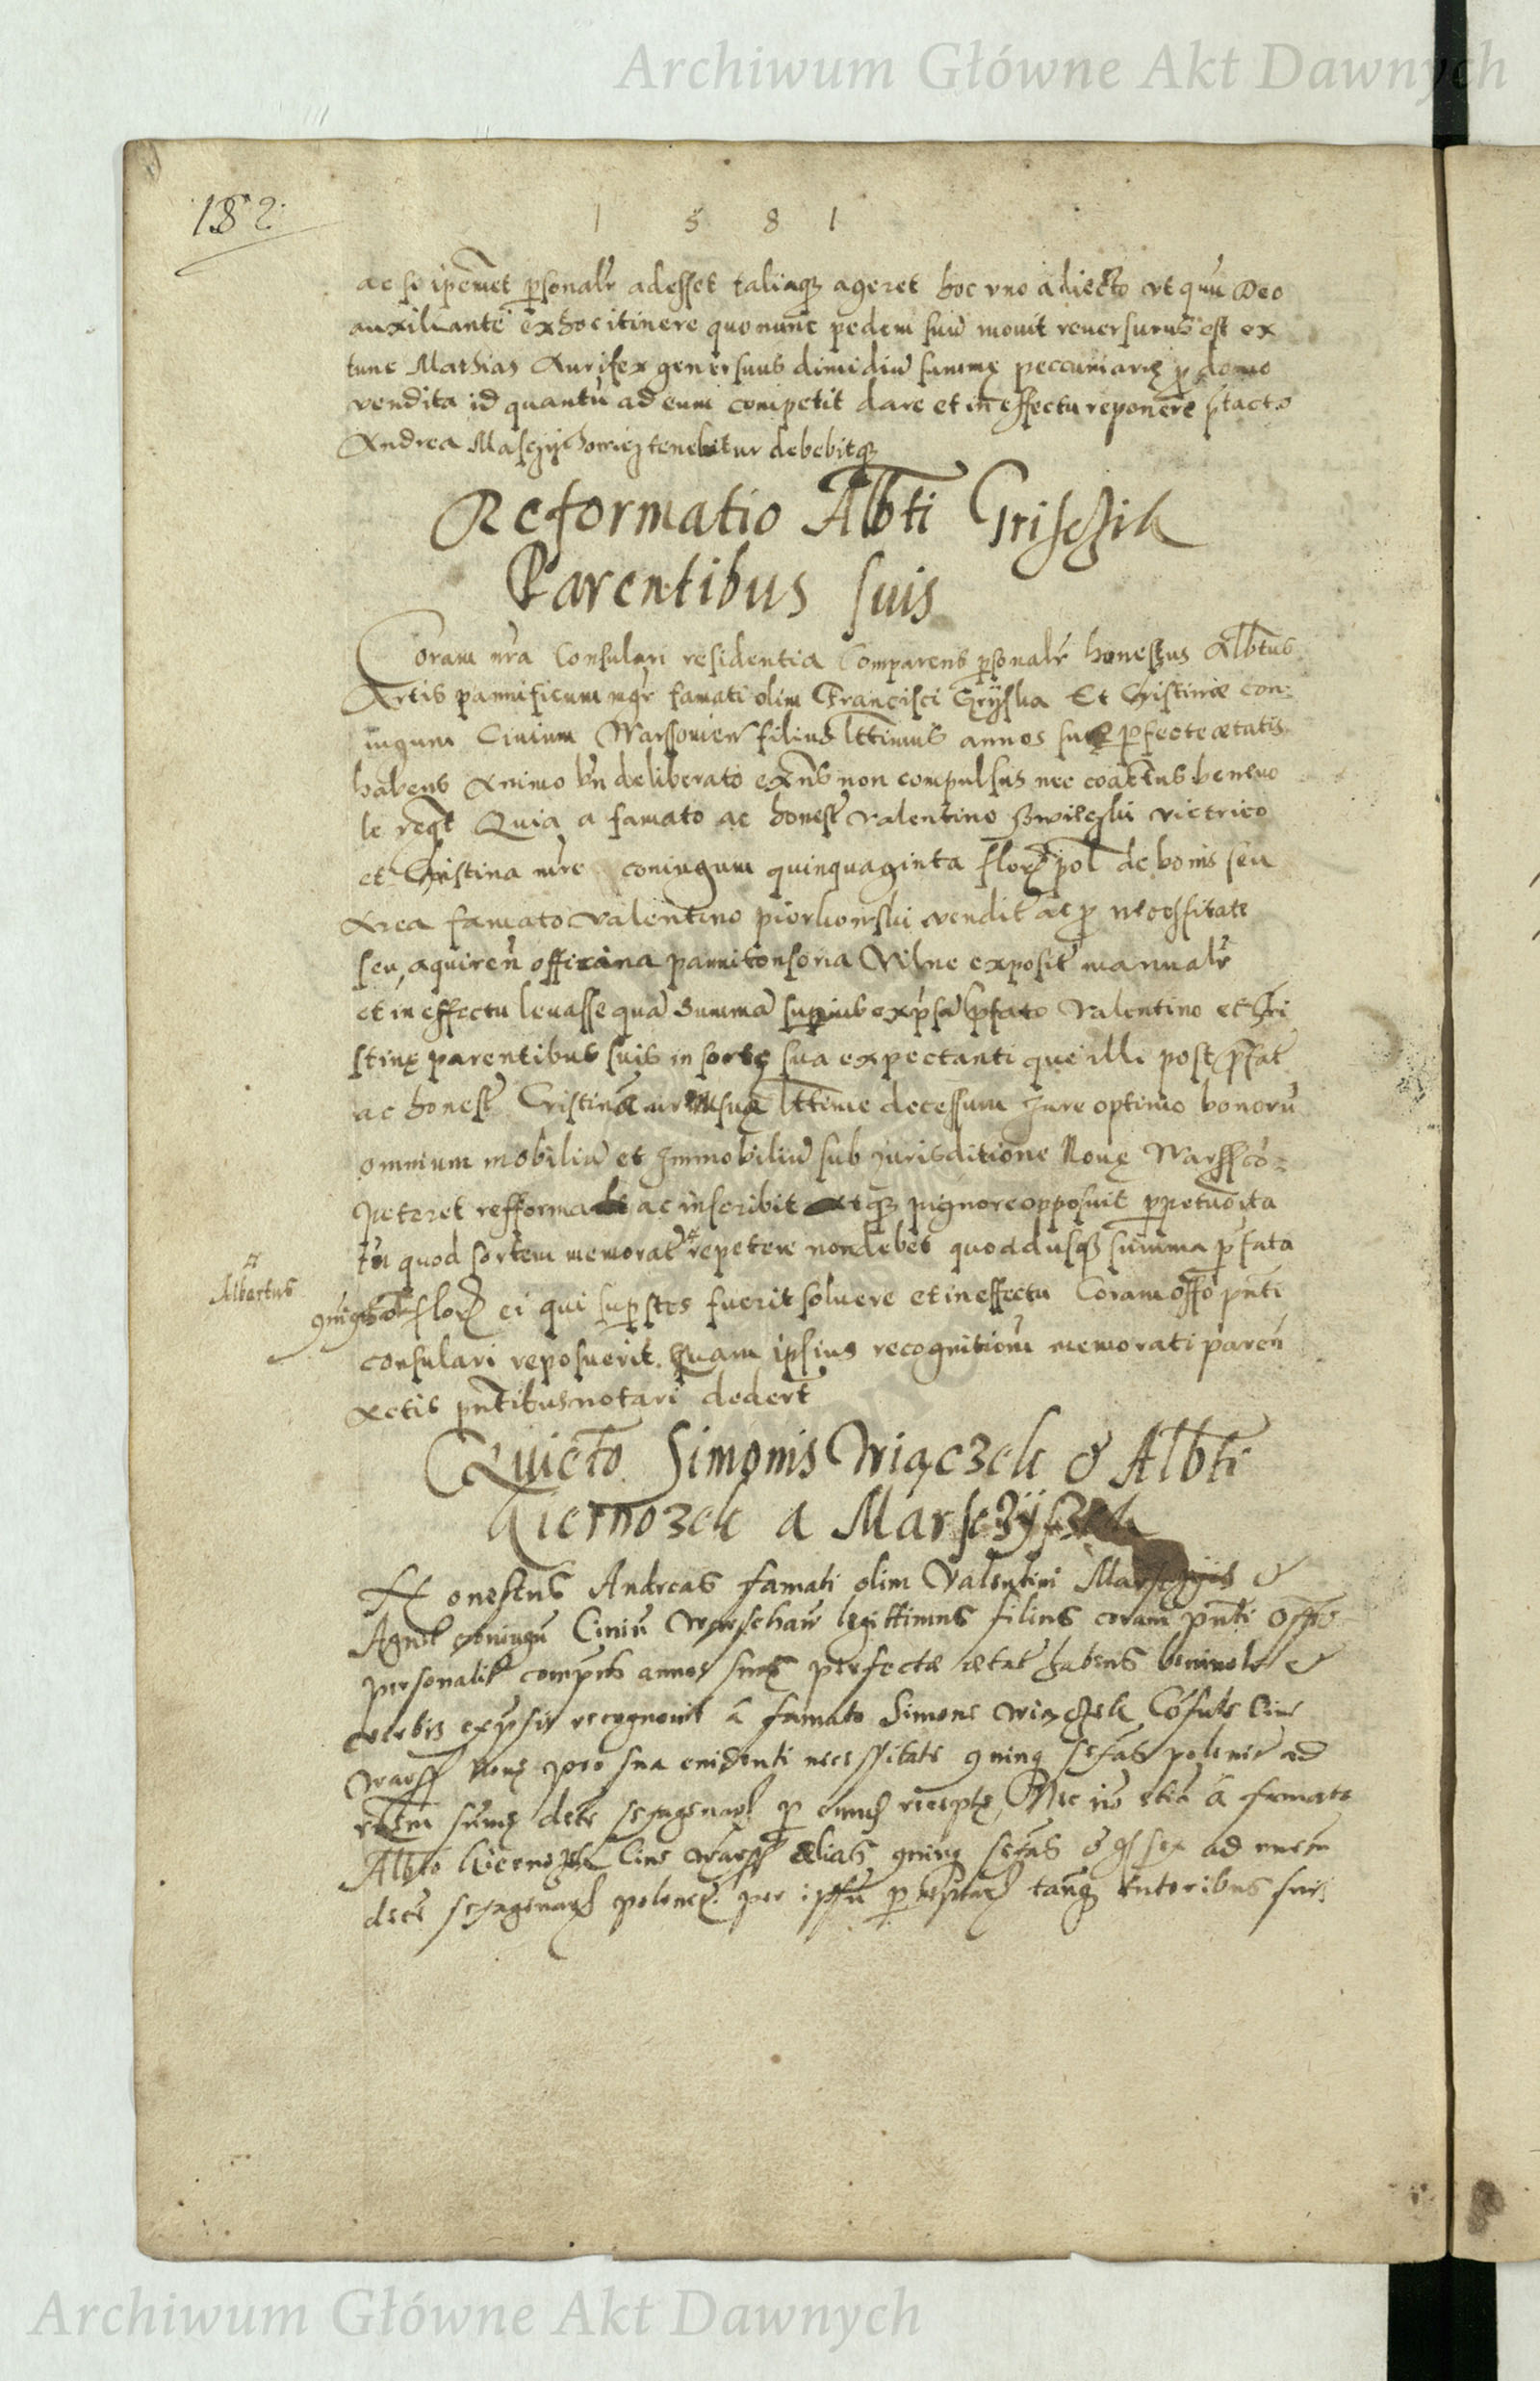 Archiwum Główne Akt Dawnych
182
1 5 8 1
ac si ipemet psonalr adesset taliaq ageret hoc vno adiecto vt quu Deo
auxiliante ex hoc itinere quo nunc pedem suu mouit reuersurus est ex
tunc Mathias Aurifex gener suus dimidiu summę peccuniarię p domo
vendita id quantu ad eum competit dare et in effectu reponere ptacto
Andrea tenebitur debebitq
Reformatio Albti Grisczik
Parentibus suis
Coram nra Consulari residentia Comparens psonalr honestus Albtus
Artis pannificum mgr famati olim Francisci Et Christinæ con-
iugum Ciuium Warssouien filius lttimus annos suę pfecte ætatis
habens Animo bn deliberato exns non compulsus nec coactus beneuo
le regt Quia a famato ac honest Valentino victrico
et Christina mre coniugum quinquaginta flor pol de bonis seu
Area famato Valentino piorkowski vendit ac p necessitate
seu aquiren officina pannitonsoria Vilne exposit manualr
et in effectu leuasse qua Summa supius expsa pfato Valentino et Chri
stinę parentibus suis in sorte sua expectanti que illi post pfat
ac honest Cristinæ suę lttime decessum Jure optimo bonoru
omnium mobiliu et Immobiliu sub Jurisditione Nouę Warss co-
peteret refformat ac inscribit atq pignore opposuit ppetuo ita
tn quod sortem memorat repetere non debet quoadusq summa pfata
Albertus
flor ei qui supstes fuerit soluere et in effectu Coram offo pnti
consulari reposuerit. Quam ipsius recognitionu memorati paren
Actis pntibus notari dedert
Quieto Simonis Wiączek & Albti
Kiernozek a
Honestus Andreas famati olim Valentini &
Agnet coniugu Ciuiu Warschaw legittimus filius coram pnti offo
personalit compns annos suos perfectæ ætat habens beniuole &
verbis expsis recognouit a famato Simone wiączek Cosule Ciue
warss Nouę pro sua euidenti necessitate sexas polonic ad
summ dece sexagenar p recept, Nec no etia a famato
Albto Ciue warss alias sexas & sex ad
dece sexagenar polonic. per ipsu tanq tutoribus suis
Archiwum Główne Akt Dawnych